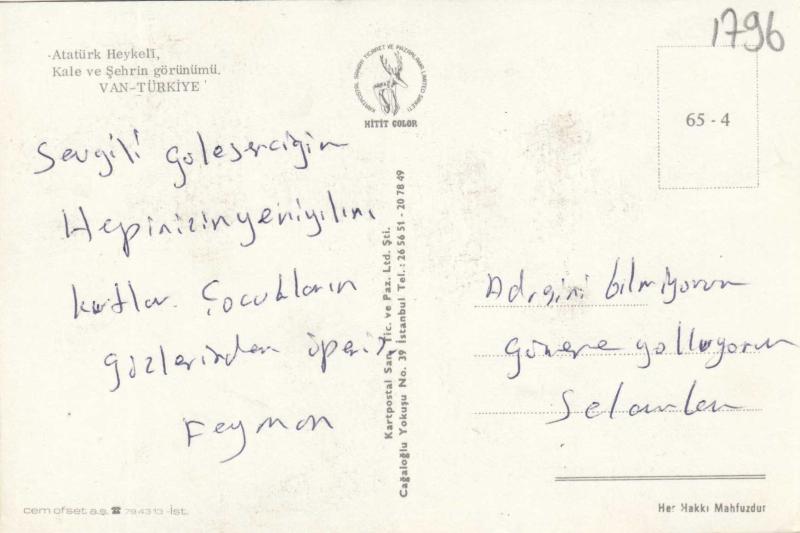 1796
Atatürk Heykeli,
Kale ve Şehrin görünümü.
VAN-TÜRKİYE
HİTİT COLOR
65 - 4
Sevgili
Hepinizin yeni yılını
kutlar. Çocukların
gözlerinden öperiz
Feyman
Kartpostal San. Tic. ve Paz. Ltd. Şti.
Cağaloğlu Yokuşu No. 39 İstanbul Tel.: 26 56 51 - 20 78 49
Adresini bilmiyorum
yolluyorum
Selamlar
cem ofset a.ş. ☎ 79 43 13 -İst.
Her Hakkı Mahfuzdur